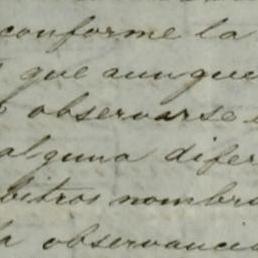 conforme la
que aunque
observarse
alguna difer
bitros nombra
la observanci